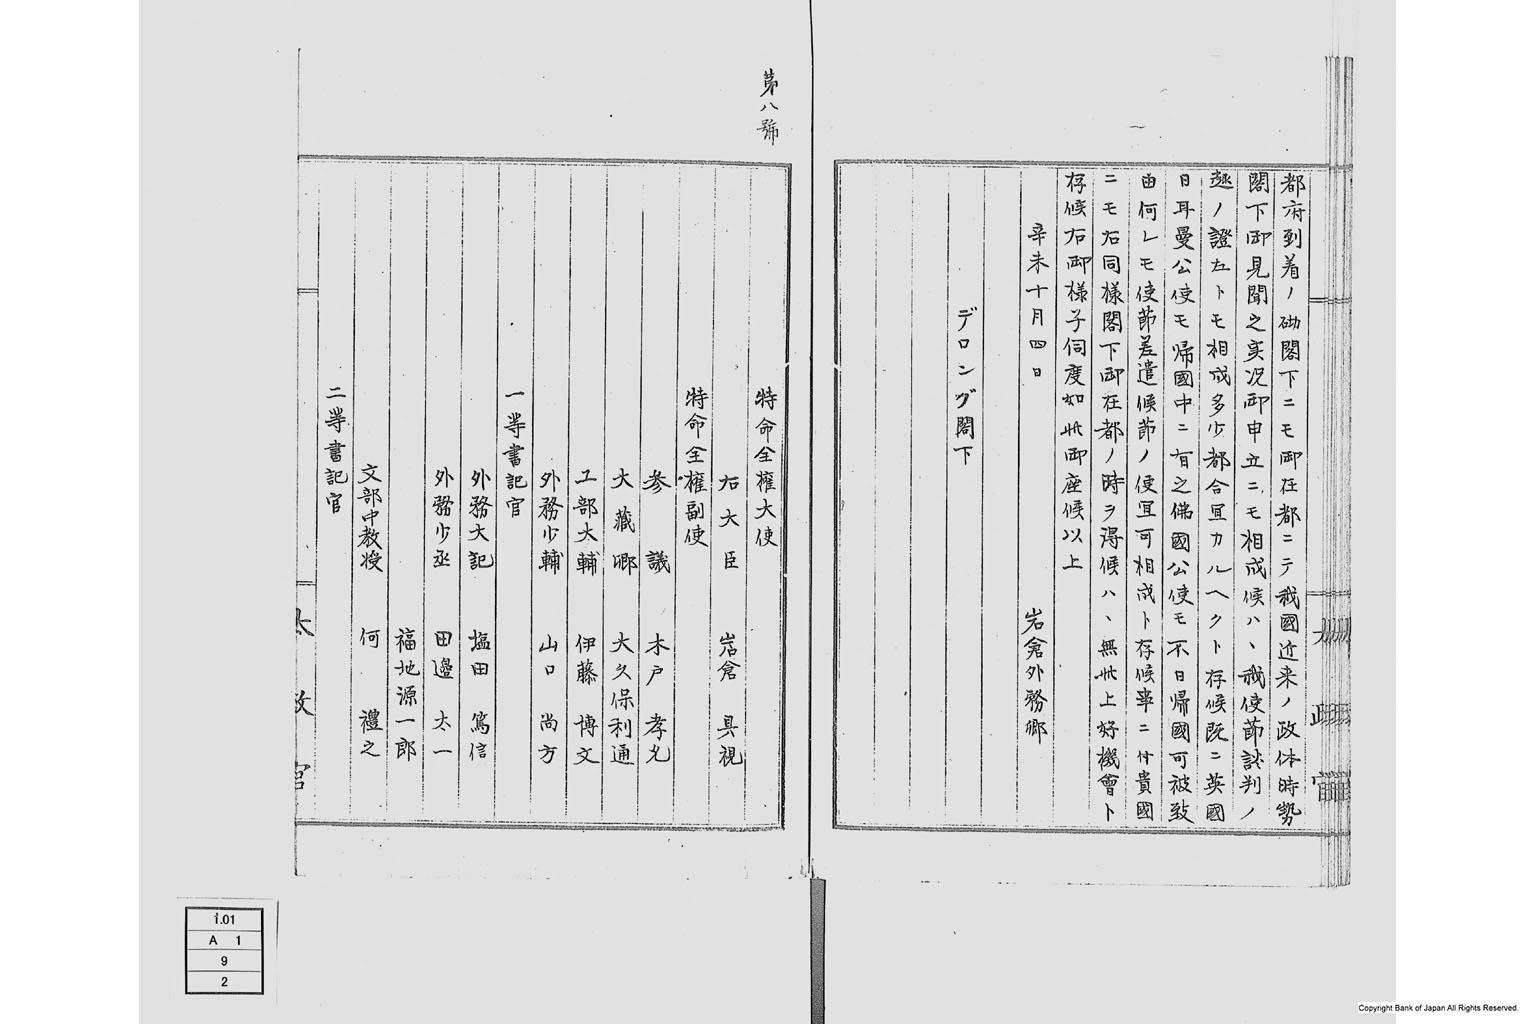 都府到着ノ砌閣下ニモ御在都ニテ我國近来ノ政体時勢
閣下御見聞之実況御申立ニモ相成候ハヽ我使節談判ノ
趣ノ證左トモ相成多少都合宜カルヘクト存候既ニ英國
日耳曼公使モ帰國中ニ有之佛國公使モ不日帰國可被致
由何レモ使節差遣候節ノ便宜可相成ト存候率ニ付貴國
ニモ右同様閣下御在都ノ時ヲ得候ハヽ無此上好機會ト
存候右御様子伺度如此御座候以上
辛未十月四日
岩倉外務卿
デロング閣下
太政官
第八號
特命全權大使
右大臣 岩倉具視
特命全權副使
参議 木戸孝允
大藏卿 大久保利通
工部大輔 伊藤博文
外務少輔 山口尚方
一等書記官
外務大記 塩田篤信
外務少丞 田邊太一
福地源一郎
文部中教授 何禮之
二等書記官
太政官
1.01
A 1
9
2
Copyright Bank of Japan All Rights Reserved.